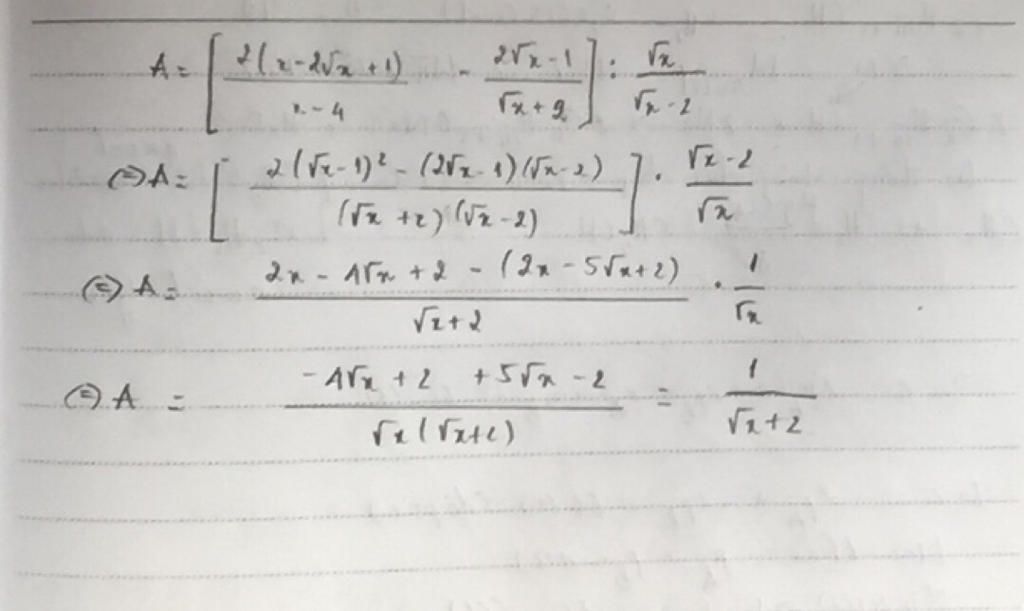 A = [ 2(x - 2√x + 1) / x - 4 - 2√x - 1 / √x + 2 ] : √x / √x - 2
(=) A = [ 2(√x - 1)² - (2√x - 1)(√x - 2) / (√x + 2)(√x - 2) ] . √x - 2 / √x
(=) A = 2x - 4√x + 2 - (2x - 5√x + 2) / √x + 2 . 1 / √x
(=) A = -4√x + 2 + 5√x - 2 / √x(√x + 2) = 1 / √x + 2